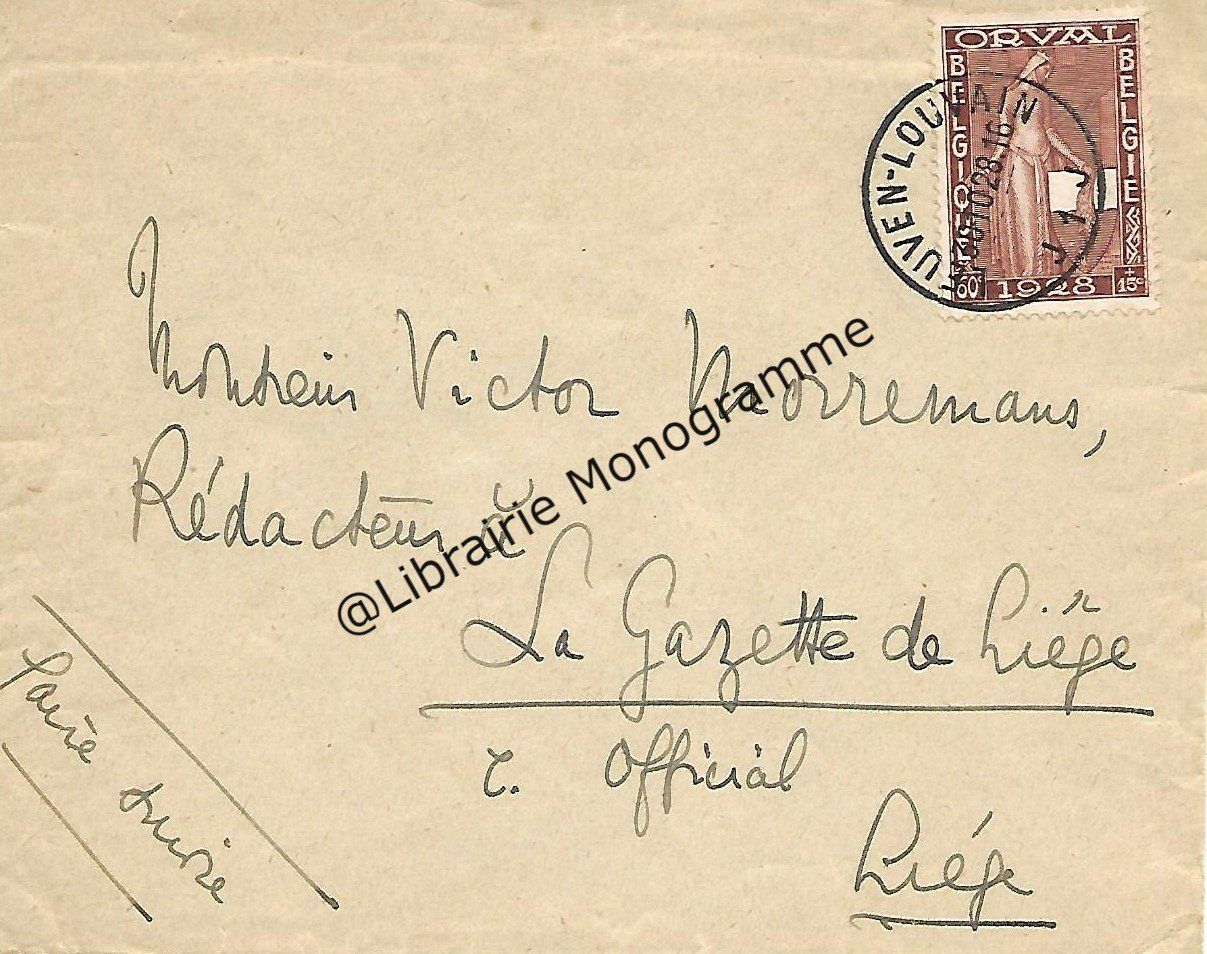 ORVAL
BELGIQUE
BELGIË
60c
1928
+15c
LEUVEN-LOUVAIN
1028.16
J 1 J
Monsieur Victor Moorremans,
Rédacteur à
La Gazette de Liége
r. Official
Liége
faire suivre
@Librairie Monogramme